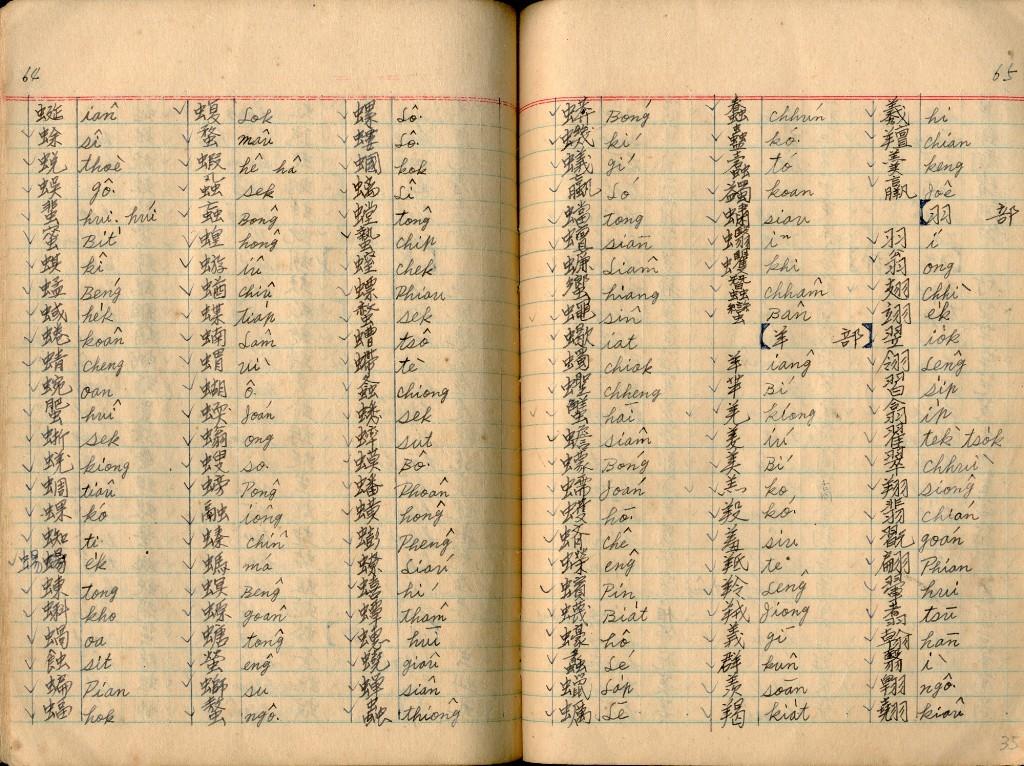 64
蜒 iân
蜍 sî
蛻 thoè
蜈 gô·
蜚 hui. húi
蜜 Bi̍t
蜞 kî
蜢 Béng
蜮 he̍k
蜷 koân
蜻 cheng
蜿 oan
蜰 huî
蜥 sek
蜣 kiong
蜩 tiâu
蜾 kó
蜘 ti
蜴 蜴 e̍k
蝀 tong
蝌 kho
蝸 oa
蝕 si̍t
蝙 Pian
蝠 hok
蝮 Lok
蝥 mâu
蝦 hê hâ
蝨 sek
蝱 Bông
蝗 hông
蝣 iû
蝤 chiû
蝶 tia̍p
蝻 Lâm
蝟 uī
蝴 ô·
蝡 Joán
螉 ong
螋 so·
螃 Pông
融 iông
螓 chîn
螞 má
螟 Bêng
螈 goân
螗 tông
螢 eng
螄 su
螯 ngô·
螺 Lô·
螻 Lô·
蟈 kok
螭 Lî
螳 tông
蟄 chi̍p
螲 chek
螵 Phiau
螫 sek
螬 tsô
螮 tè
螽 chiong
蟋 sek
蟀 sut
蟆 Bô·
蟠 Phoân
蟥 hông
蟛 Phêng
蟟 Liáu
蟢 hí
蟫 thâm
蟪 huī
蟯 giâu
蟬 siân
蟲 thiông
65
蟒 Bóng
蟣 kí
蟻 gí
蠃 Ló
蟷 tong
蟺 siān
蠊 Liâm
蠁 hiang
蠅 sîn
蠍 iat
蠋 chiok
蟶 chheng
蟹 hāi
蟾 siâm
蠓 Bóng
蠕 Joán
蠖 hō·
蠐 chê
蠑 êng
蠙 Pin
蠛 Bia̍t
蠔 hô
蠡 Lé
蠟 La̍p
蠣 Lē
蠢 chhún
蠱 kó·
蠹 tò
蠲 koan
蠨 siau
蠮 iⁿ
蠷 khî
蠶 chhâm
蠻 Bân
【羊 部】
羊 iâng
羋 Bí
羌 kiong
羑 iú
美 Bí
羔 ko
羖 kó·
羞 siu
羝 te
羚 Lêng
羢 Jiong
義 gī
群 kûn
羨 soān
羯 kia̍t
羲 hi
羶 chian
羹 keng
羸 Joê
【羽 部
羽 í
翁 ong
翅 chhì
翊 e̍k
翌 io̍k
翎 Lêng
習 si̍p
翕 ip
翟 te̍k tso̍k
翠 chhuì
翔 siông
翦 chián
翫 goān
翩 Phian
翬 hui
翥 tsū
翰 hān
翳 ì
翱 ngô·
翹 kiâu
35